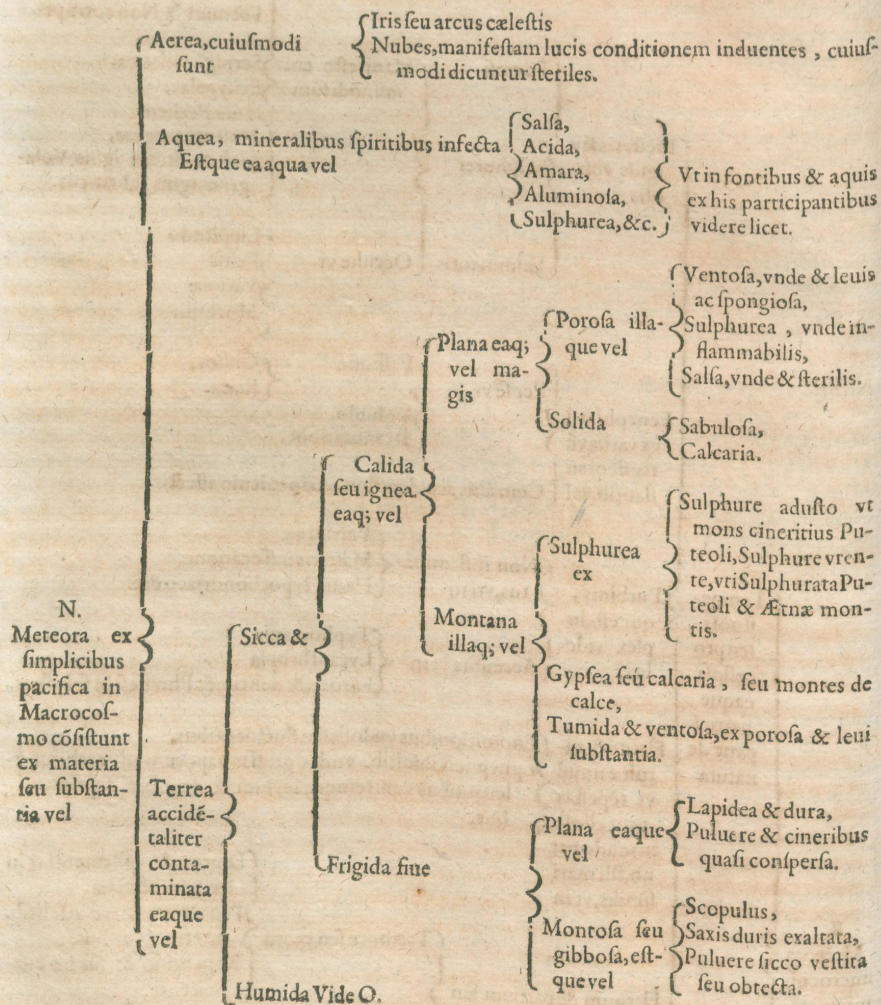 N.
Meteora ex
simplicibus
pacifica in
Macrocoſ-
mo cõſiſtunt
ex materia
ſeu ſubſtan-
tia vel
Aerea, cuiuſmodi
ſunt
Iris ſeu arcus cæleſtis
Nubes, manifeſtam lucis conditionem induentes , cuiuſ-
modi dicuntur ſteriles.
Aquea, mineralibus ſpiritibus infecta
Eſtque ea aqua vel
Salſa,
Acida,
Amara,
Aluminoſa,
Sulphurea, &c.
Vt in fontibus & aquis
ex his participantibus
videre licet.
Terrea
accidẽ-
taliter
conta-
minata
eaque
vel
Sicca &
Calida
ſeu ignea.
eaq; vel
Plana eaq;
vel ma-
gis
Poroſa illa-
que vel
Ventoſa, vnde & leuis
ac ſpongioſa,
Sulphurea , vnde in-
flammabilis,
Salſa, vnde & ſterilis.
Solida
Sabuloſa,
Calcaria.
Montana
illaq; vel
Sulphurea
ex
Sulphure aduſto vt
mons cineritius Pu-
teoli, Sulphure vren-
te, vti Sulphurata Pu-
teoli & Ætnæ mon-
tis.
Gypſea ſeu calcaria , ſeu montes de
calce,
Tumida & ventoſa, ex poroſa & leui
ſubſtantia.
Frigida ſiue
Plana eaque
vel
Lapidea & dura,
Puluere & cineribus
quaſi conſperſa.
Montoſa ſeu
gibboſa, eſt-
que vel
Scopulus,
Saxis duris exaltata,
Puluere ſicco veſtita
ſeu obtecta.
Humida Vide O.